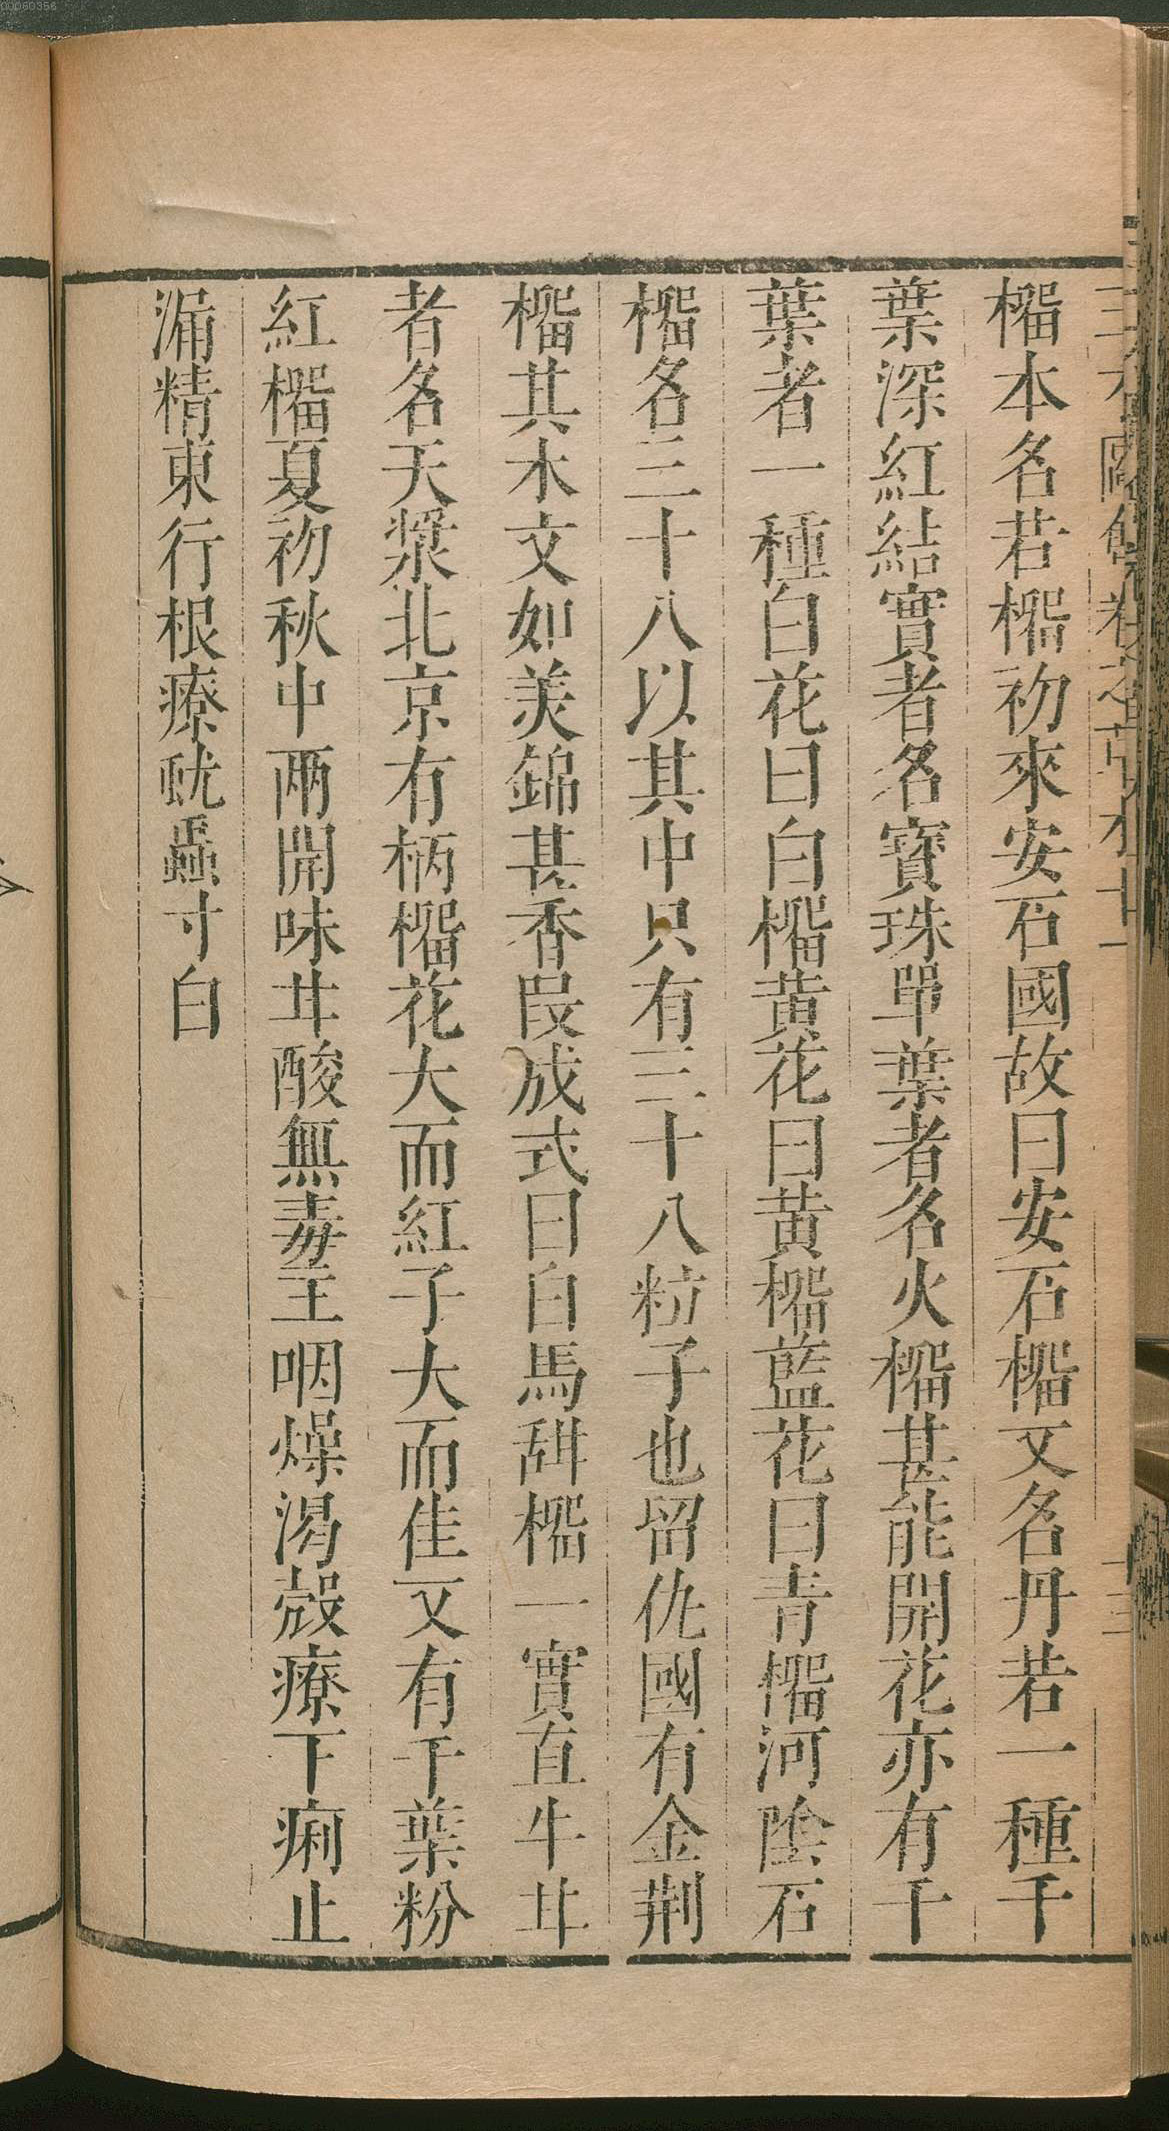 榴本名若榴初來安石國故曰安石榴又名丹若一種千
葉深紅結實者名寶珠單葉者名火榴甚能開花亦有千
葉者一種白花曰白榴黃花曰黃榴藍花曰青榴河陰石
榴名三十八以其中只有三十八粒子也留仇國有金荆
榴其木文如美錦甚香段成式曰白馬甜榴一實直牛甘
者名天漿北京有柄榴花大而紅子大而佳又有千葉粉
紅榴夏初秋中兩開味甘酸無毒主咽燥渴殼療下痢止
漏精東行根療蚘蟲寸白